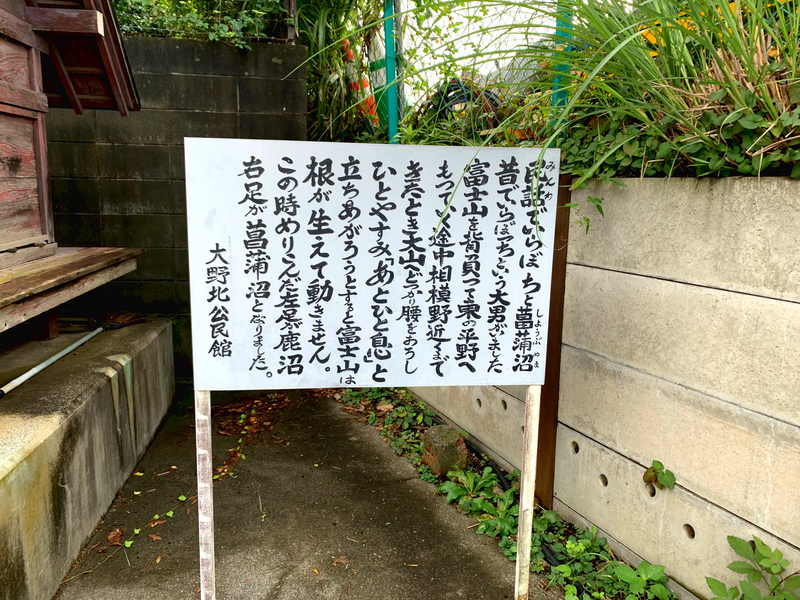 民話でいらぼっちと菖蒲沼
みんわ
しょうぶ やま
昔でいらぼっちという大男がいました
富士山を背負って東の平野へ
もっていく途中相模野近くまで
きたとき大山へどっかり腰をおろし
ひとやすみ「あとひと息」と
立ちあがろうとすると富士山は
根が生えて動きません。
この時めりこんだ左足が鹿沼
右足が菖蒲沼となりました。
大野北公民館